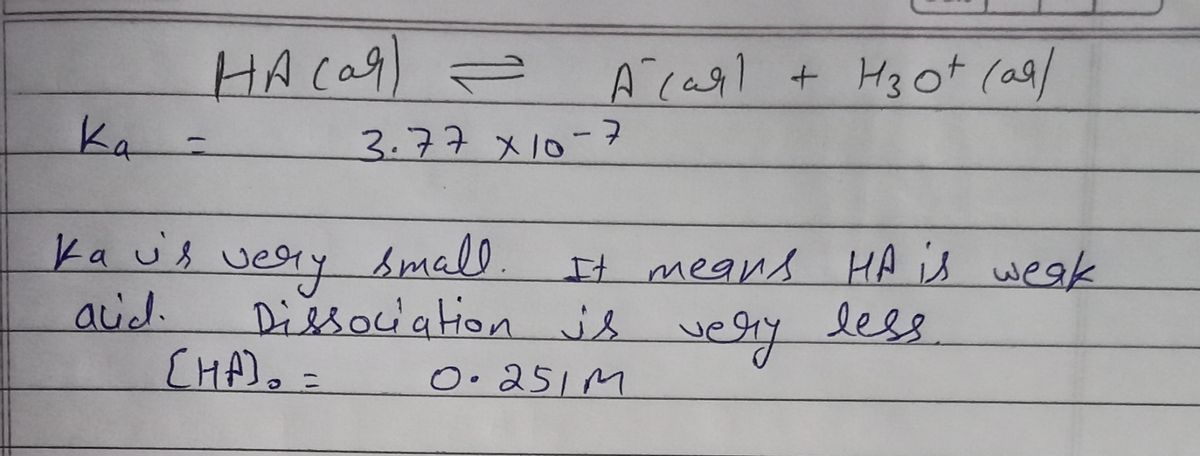 HA (aq) ⇌ A⁻(aq) + H₃O⁺ (aq)
Ka = 3.77 × 10⁻⁷
Ka is very small. It means HA is weak
acid. Dissociation is very less.
[HA]₀ = 0.251M